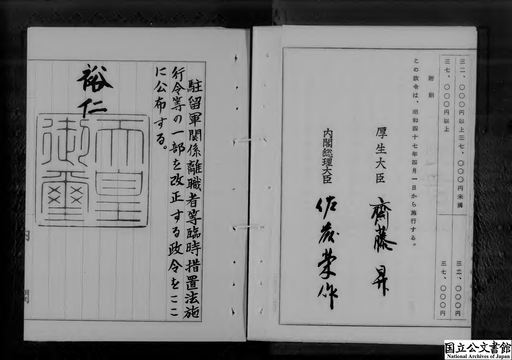 三二、〇〇〇円以上三七、〇〇〇円未満
三二、〇〇〇円
三七、〇〇〇円以上
三七、〇〇〇円
附則
この政令は、昭和四十七年四月一日から施行する。
厚生大臣 齋藤昇
内閣総理大臣 佐藤榮作
駐留軍関係離職者等臨時措置法施
行令等の一部を改正する政令をここ
に公布する。
裕仁
天皇
御璽
内
閣
国立公文書館
National Archives of Japan